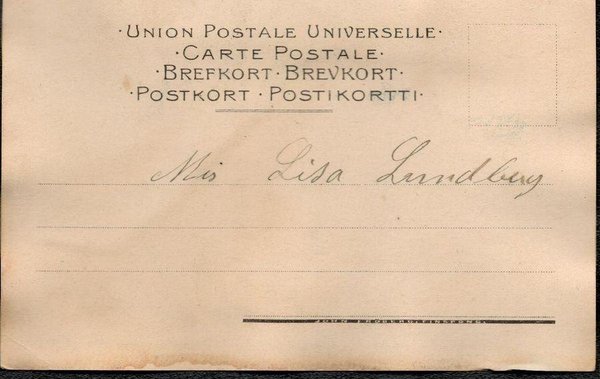 ·UNION POSTALE UNIVERSELLE·
·CARTE POSTALE·
·BREFKORT·BREVKORT·
·POSTKORT·POSTIKORTTI·
Mis Lisa Lundberg
JOHN FROBERG, FINSPONG.